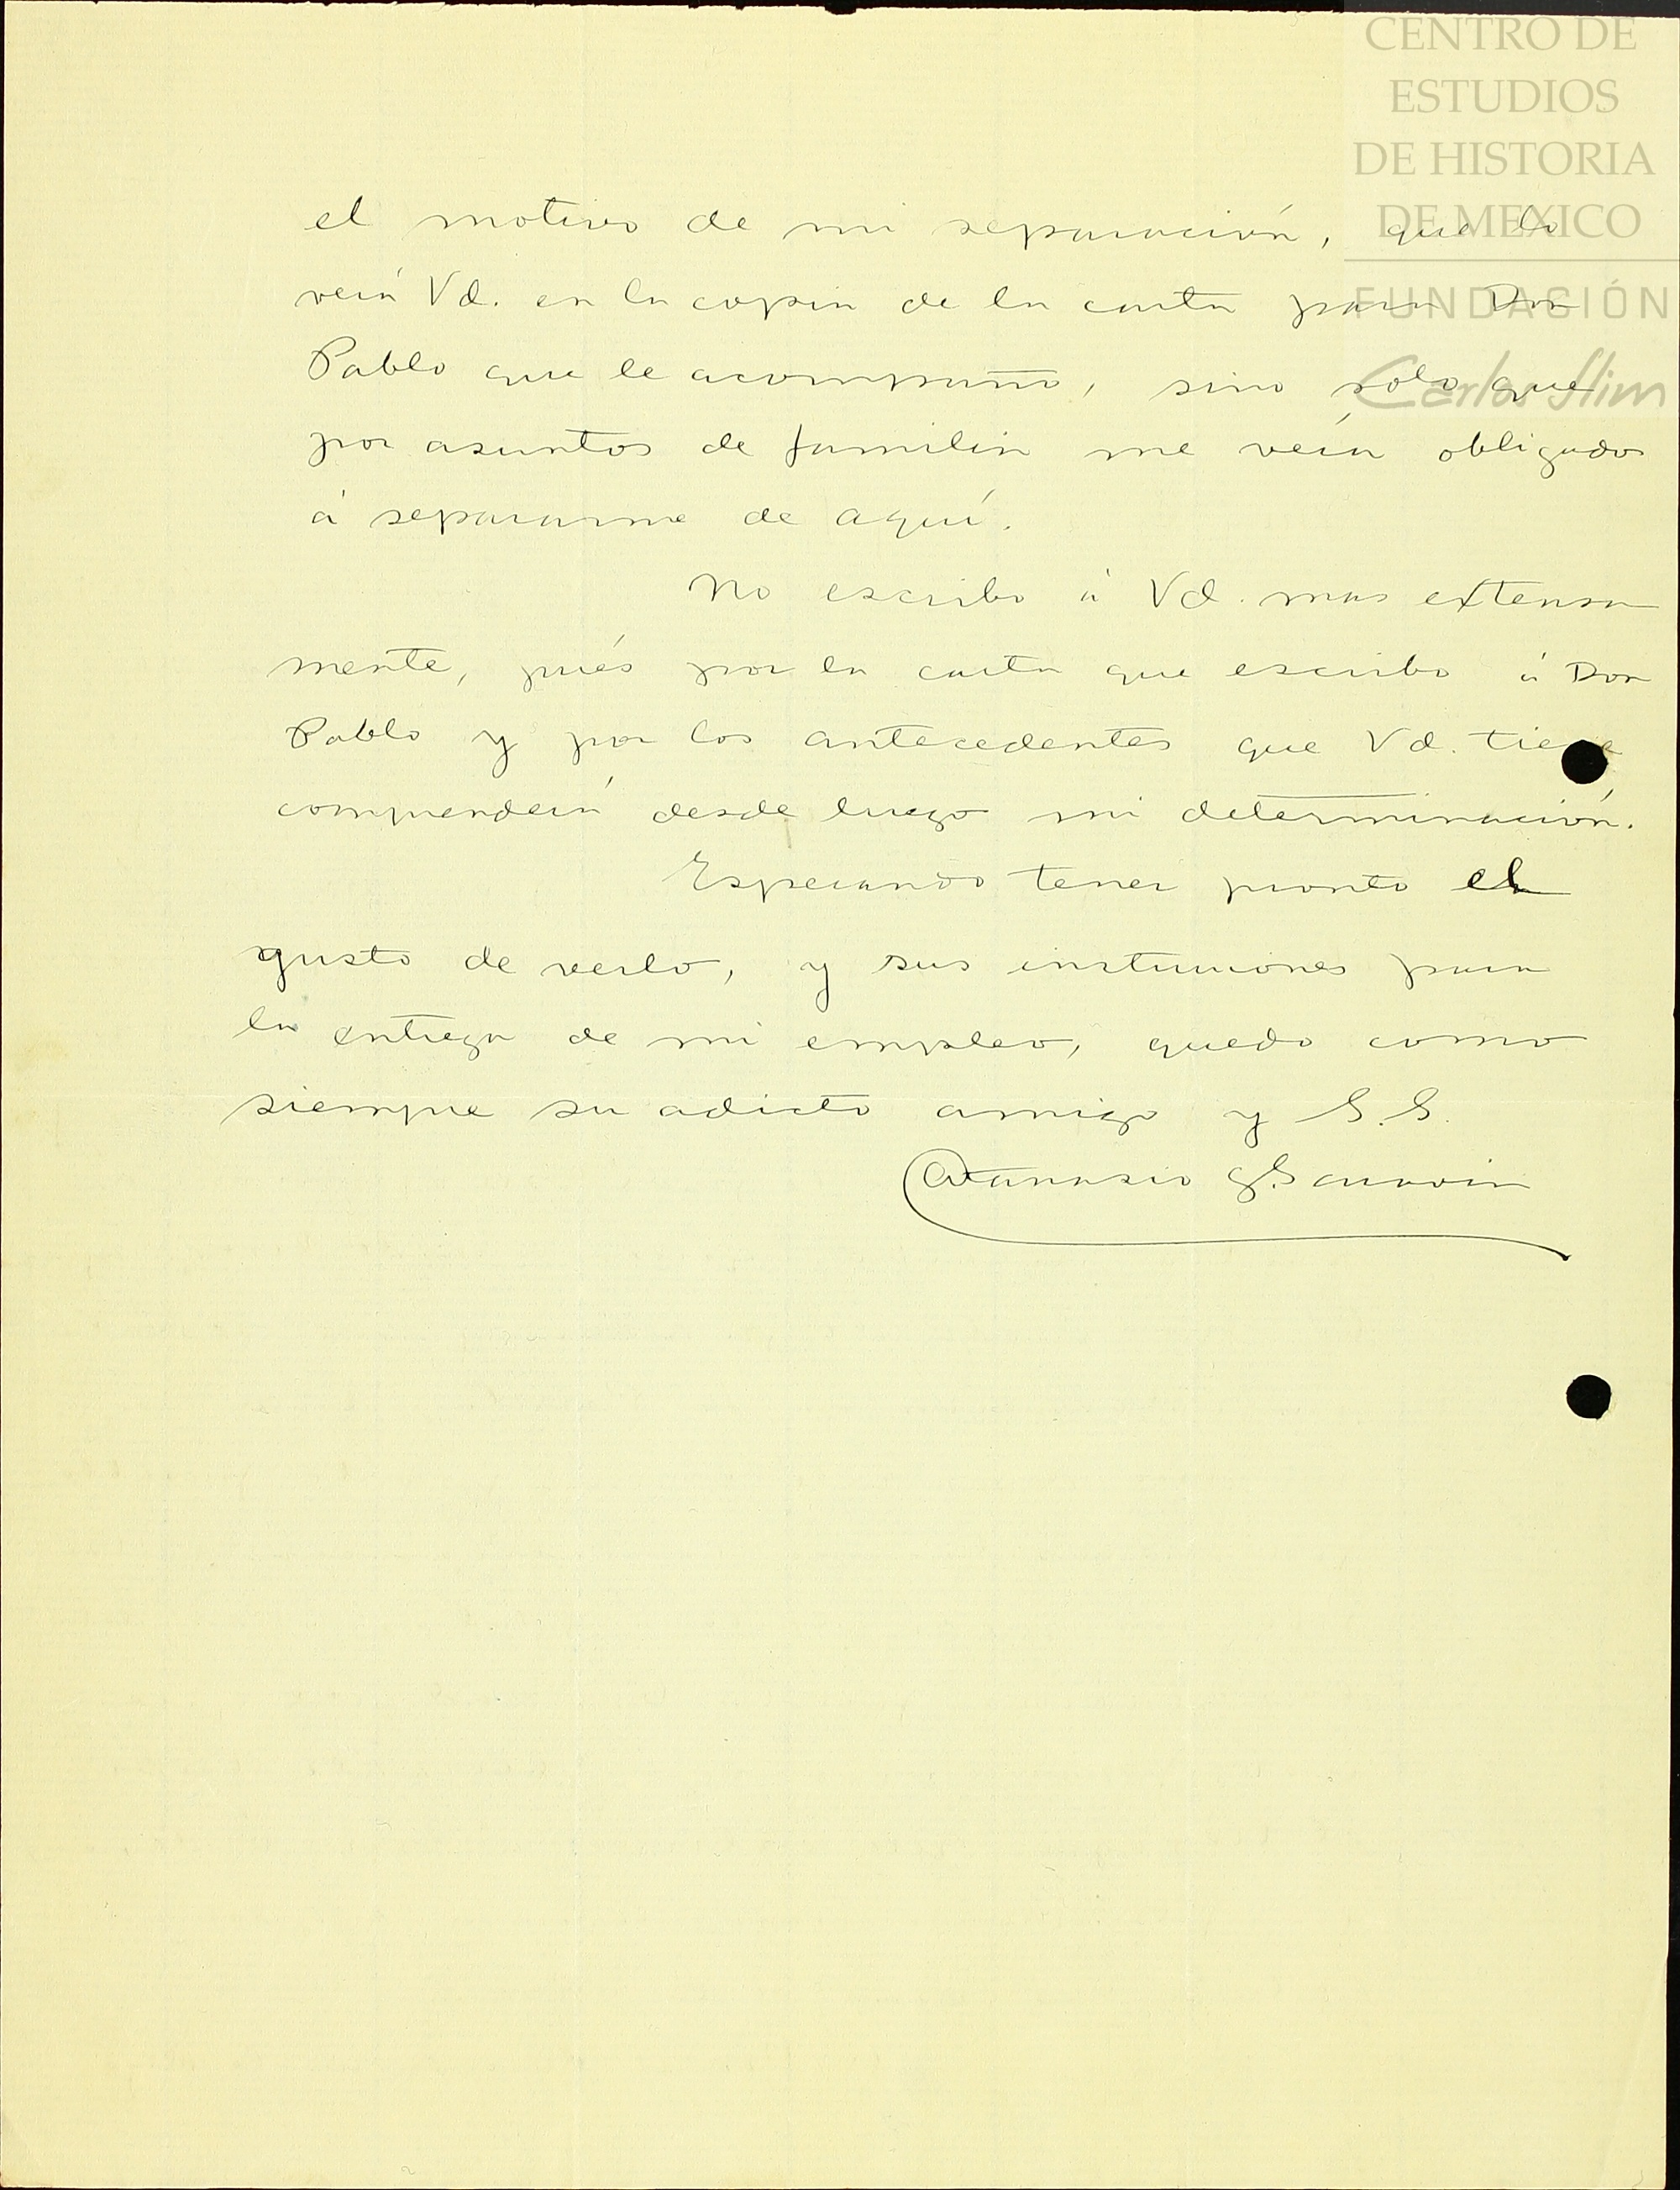 CENTRO DE
ESTUDIOS
DE HISTORIA
DE MEXICO
FUNDACIÓN
Carlos Slim
el motivo de mi separación, que lo
verá Vd. en la copia de la carta para Don
Pablo que le acompaño, sino solo que
por asuntos de familia me veía obligado
á separarme de aquí.
No escribo á Vd. mas extensa
mente, pués por la carta que escribo á Don
Pablo y por los antecedentes que Vd. tiene
comprenderá desde luego mi determinación.
Esperando tener pronto el
gusto de verlo, y sus instrucciones para
la entrega de mi empleo, quedo como
siempre su adicto amigo y S.S.
Atanasio G. Saravia